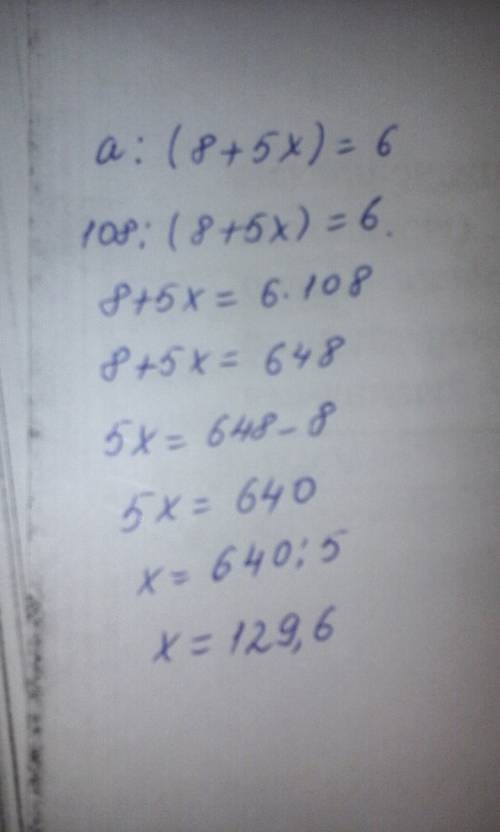 a : (8+5x) = 6
108 : (8+5x) = 6.
8+5x = 6·108
8+5x = 648
5x = 648-8
5x = 640
x = 640:5
x = 129,6